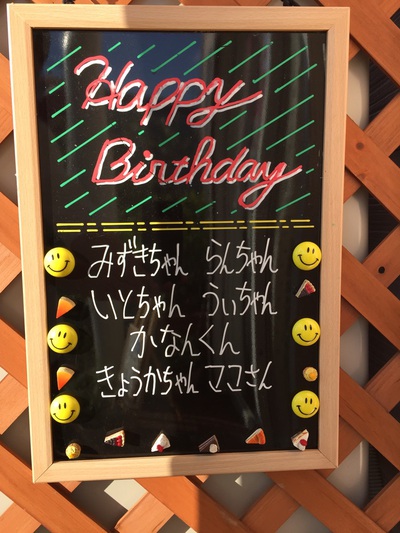 Happy
Birthday
みずきちゃん らんちゃん
いとちゃん ういちゃん
かなんくん
きょうかちゃん ココさん